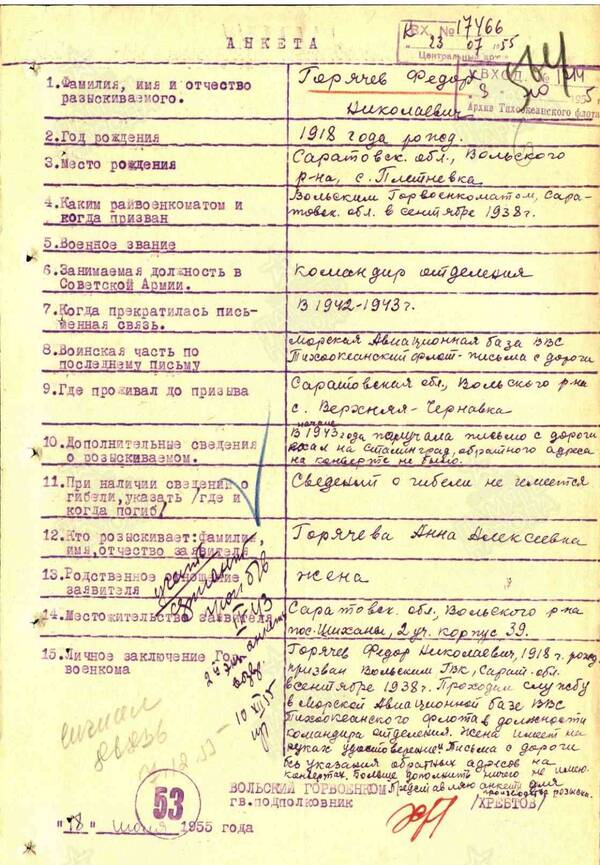 ВХ. № 17466
23 07 55
АНКЕТА
ВХОД. №
Архив Тихоокеанского флота
1.Фамилия, имя и отчество
разыскиваемого.
Горячев Федор
Николаевич
2.Год рождения
1918 года рожд.
3.Место рождения
Саратовск. обл., Вольского
р-на, с. Плетневка
4.Каким райвоенкоматом и
когда призван
Вольским Горвоенкоматом, Сара-
товск. обл. в сентябре 1938г.
5.Военное звание
6.Занимаемая должность в
Советской Армии.
командир отделения
7.Когда прекратилась пись-
менная связь.
В 1942-1943г.
8.Воинская часть по
последнему письму
Морская Авиационная база ВВС
Тихоокеанский флот - письма с дороги
9.Где проживал до призыва
Саратовская обл., Вольского р-на
с. Верхняя-Чернавка
10.Дополнительные сведения
о розыскиваемом.
начале
В 1943 года получала письмо с дороги
ехал на Сталинград, обратного адреса
на конверте не было.
11.При наличии сведений о
гибели, указать /где и
когда погиб/
Сведений о гибели не имеется
12.Кто розыскивает:фамилия,
имя,отчество заявителя
Горячева Анна Алексеевна
13.Родственное отношение
заявителя
жена
14.Местожительство заявителя
Саратовск. обл., Вольского р-на
пос. Шиханы, 2 уч. корпус 39.
15.Личное заключение Гор
военкома
Горячев Федор Николаевич, 1918 г. рожд.
призван Вольским ГВК, Сарат. обл.
в сентябре 1938г. Проходил службу
в Морской Авиационной базе ВВС
Тихоокеанского флота в должности
командира отделения. Жена имеет на
руках удостоверение. Письма с дороги
без указания обратных адресов на
конвертах. Больше дополнить ничего не имею.
Представляю анкету для
производства розыска.
10 XII 55
53
ВОЛЬСКИЙ ГОРВОЕНКОМ
гв.подполковник
/ХРЕБТОВ/
"18" июля 1955 года